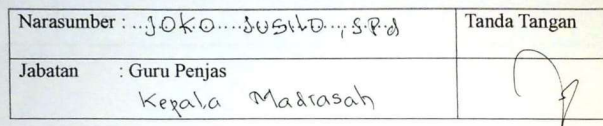 Narasumber : ..JOKO....SUSILO..,S.P.d Tanda Tangan
Jabatan : Guru Penjas
Kepala Madrasah